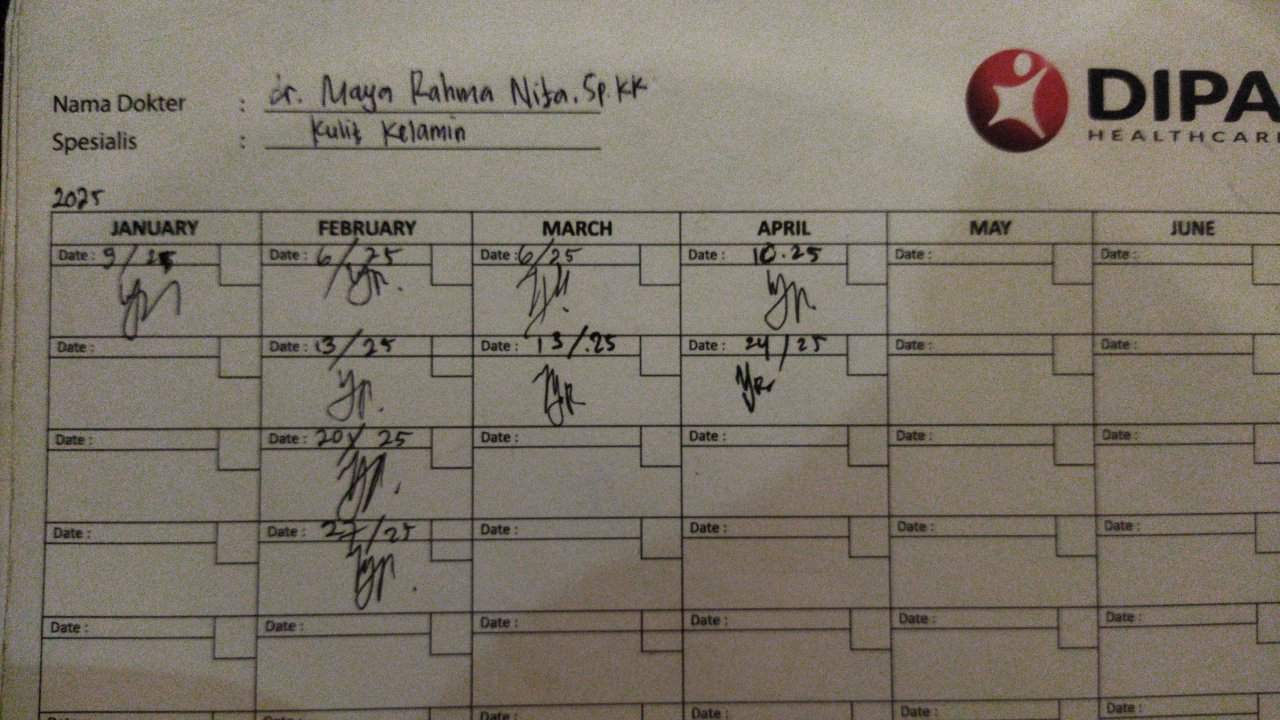 Nama Dokter : dr. Maya Rahma Nita. Sp.KK
Spesialis : Kulit Kelamin
DIPA
HEALTHCAR
2025
JANUARY FEBRUARY MARCH APRIL MAY JUNE
Date : 9/25 Date : 6/25 Date : 6/25 Date : 10.25 Date : Date :
Date : Date : 13/25 Date : 13/.25 Date : 24/25 Date : Date :
Date : Date : 20/25 Date : Date : Date : Date :
Date : Date : 27/25 Date : Date : Date : Date :
Date : Date : Date : Date : Date : Date :
Date : Date : Date : Date :